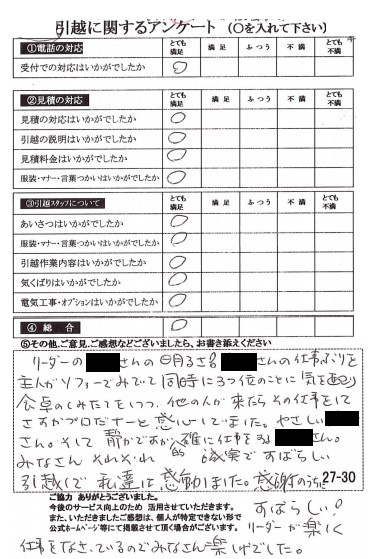 引越に関するアンケート (〇を入れて下さい)
①電話の対応 とても満足 満足 ふつう 不満 とても不満
受付での対応はいかがでしたか
②見積の対応 とても満足 満足 ふつう 不満 とても不満
見積の対応はいかがでしたか
引越の説明はいかがでしたか
見積料金はいかがでしたか
服装・マナー・言葉つかいはいかがでしたか
③引越スタッフについて とても満足 満足 ふつう 不満 とても不満
あいさつはいかがでしたか
服装・マナー・言葉つかいはいかがでしたか
引越作業内容はいかがでしたか
気くばりはいかがでしたか
電気工事・オプションはいかがでしたか
④ 総 合
⑤その他、ご意見、ご感想などございましたら、お書き添えください
リーダーの さんの明るさ さんの仕事ぶりを
主人がソファーでみてて同時に3つ位のことに気を配り
食卓のしたてをしつつ、他の人が来たらその仕事をして
さすがプロだナーと感心していました。やさしい
さん。そして静かですが 確に仕事をする さん。
みなさん それぞれ 誠実ですばらしい
引越しで私達は感動しました。感謝のうちに
27-30
ご協力 ありがとうございました。
今後のサービス向上のため 活用させていただきます。
また、いただきましたご感想は、個人が特定できない形で
公式ホームページ等にて掲載させて頂く場合がございます。
すばらしい!
リーダーが楽しく
仕事をなさっているのでみなさん楽しげでした。